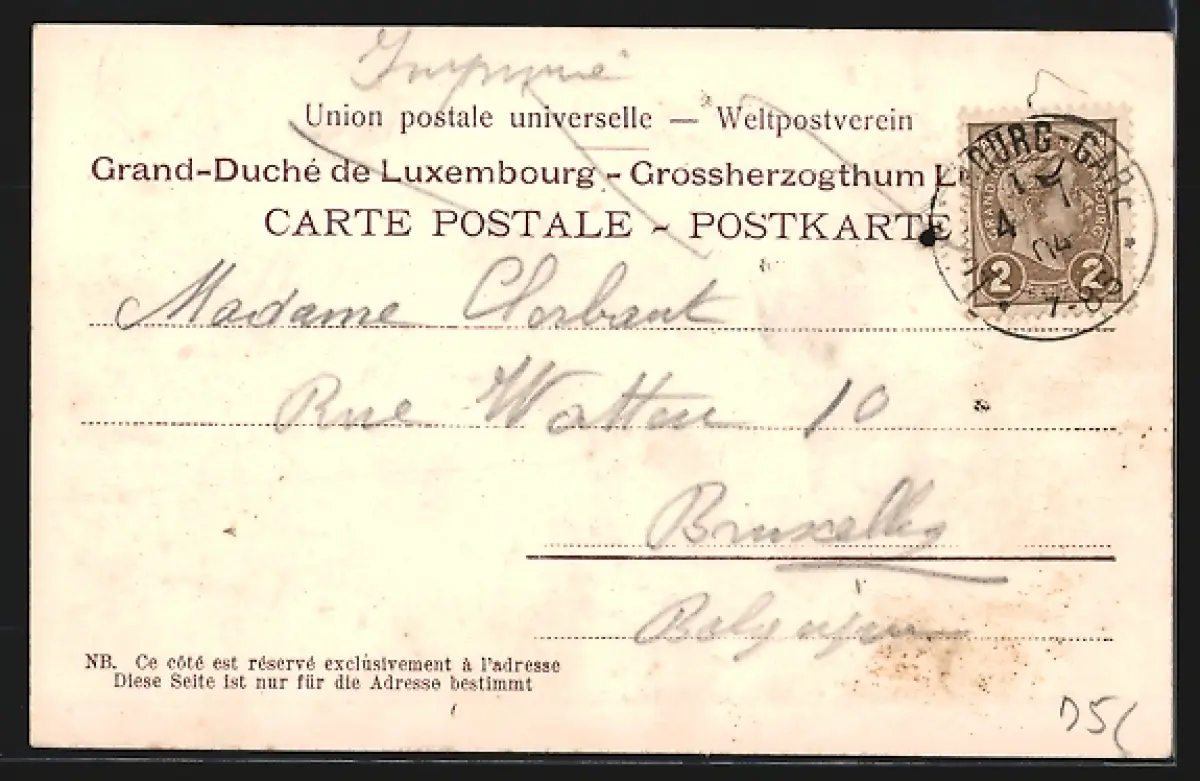 Imprimé
Union postale universelle — Weltpostverein
Grand-Duché de Luxembourg - Grossherzogthum L
CARTE POSTALE - POSTKARTE
OURG-GARE
4
04
7-8
2 2
Madame Clorbant
Rue Watteu 10
Bruxelles
Belgique
NB. Ce côté est réservé exclusivement à l'adresse
Diese Seite ist nur für die Adresse bestimmt